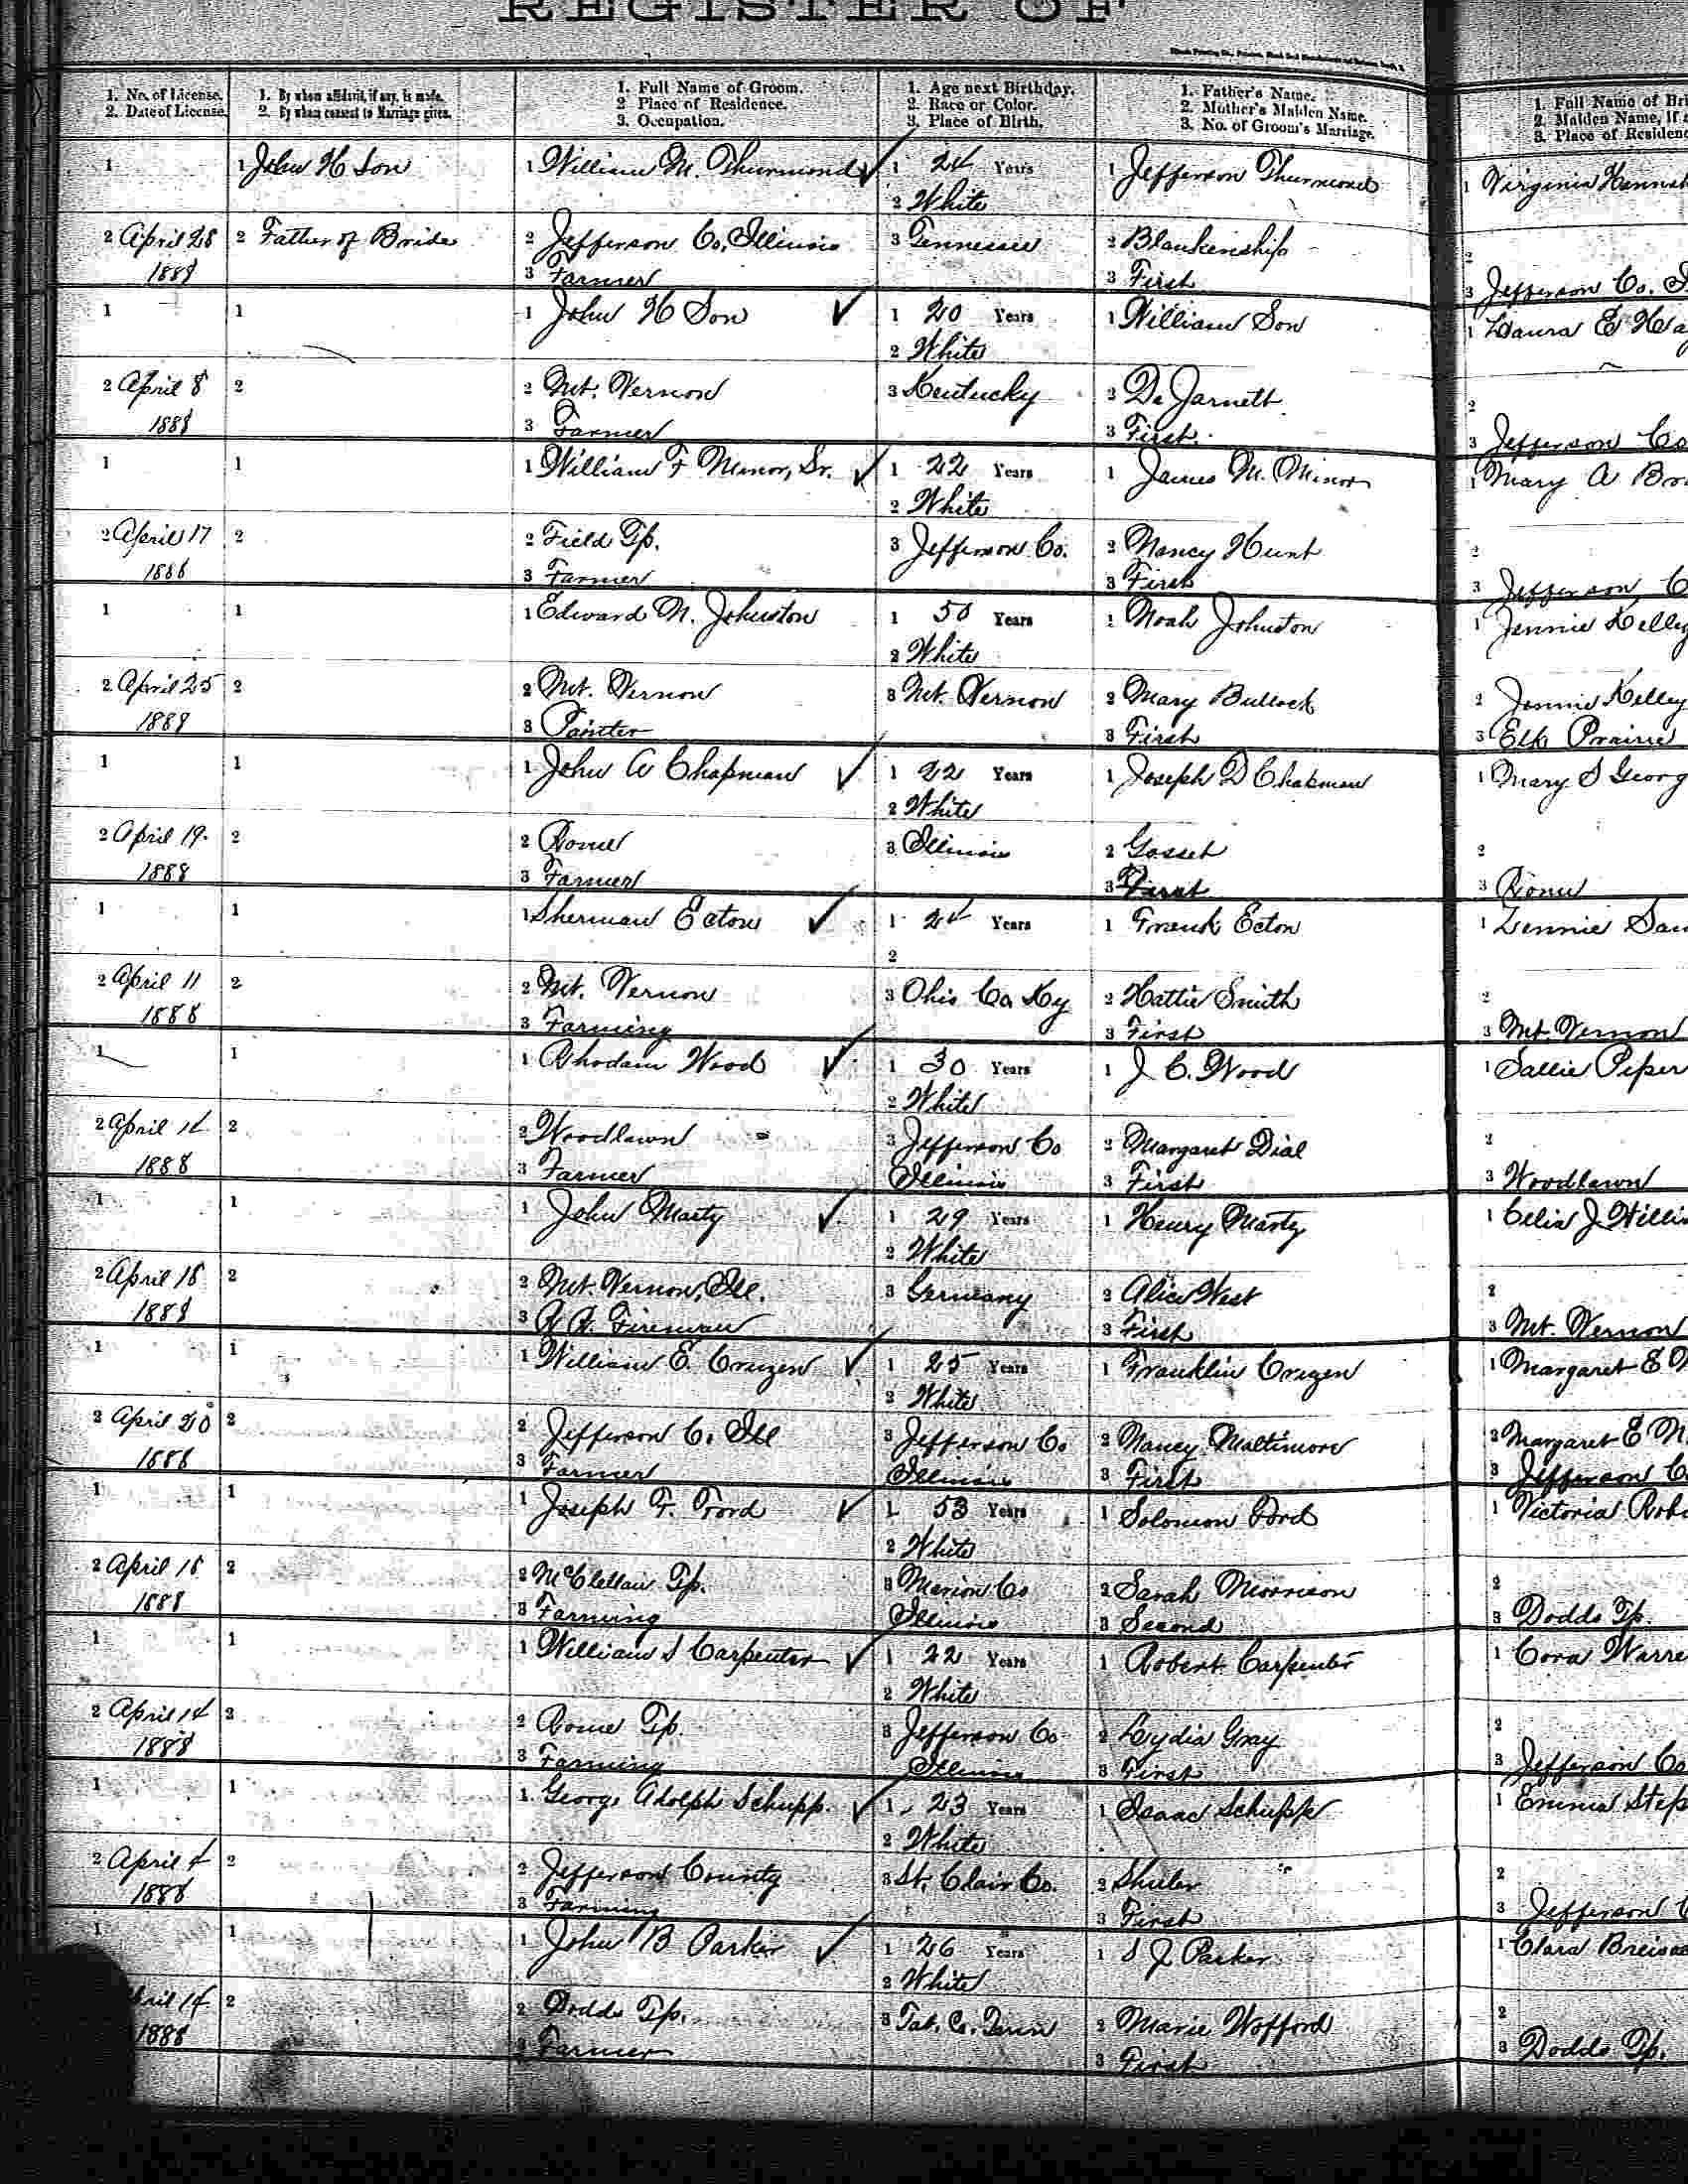 REGISTER OF
1. No. of License.
2. Date of License.
1. By whom affidavit, if any, is made.
2. By whom consent to Marriage given.
1. Full Name of Groom.
2 Place of Residence.
3. Occupation.
1. Age next Birthday.
2. Race or Color.
3. Place of Birth.
1. Father's Name.
2. Mother's Maiden Name.
3. No. of Groom's Marriage.
1. Full Name of Bri
2. Maiden Name, if
3. Place of Residenc
1
1 John H Son
1 William M. Thurmond
1 24 Years
1 Jefferson Thurmond
1 Virginia Hannah
2 White
2 April 28
2 Father of Bride
2 Jefferson Co, Illinois
3 Tennessee
2 Blankenship
2
1888
3 Farmer
3 First
3 Jefferson Co.
1
1
1 John H Son
1 20 Years
1 William Son
1 Laura E
2 White
2 April 8
2
2 Mt. Vernon
3 Kentucky
2 De Jarnett
2
1888
3 Farmer
3 First
3 Jefferson Co
1
1
1 William F Minor, Sr.
1 22 Years
1 James M. Minor
1 Mary A Bro
2 White
2 April 17
2
2 Field Tp.
3 Jefferson Co.
2 Nancy Hunt
2
1888
3 Farmer
3 First
3 Jefferson, C
1
1
1 Edward N. Johnston
1 50 Years
1 Noah Johnston
1 Jennie Kelley
2 White
2 April 25
2
2 Mt. Vernon
3 Mt. Vernon
2 Mary Bullock
2 Jennie Kelley
1888
3 Painter
3 First
3 Elk Prairie
1
1
1 John A Chapman
1 22 Years
1 Joseph D Chapman
1 Mary S Georg
2 White
2 April 19.
2
2 Rome
3 Illinois
2 Gosset
2
1888
3 Farmer
3 First
3 Rome
1
1
1 Sherman Ecton
1 24 Years
1 Frank Ecton
1 Lennie Sau
2
2 April 11
2
2 Mt. Vernon
3 Ohio Co. Ky
2 Hattie Smith
2
1888
3 Farming
3 First
3 Mt. Vernon
1
1
1 Rhodam Wood
1 30 Years
1 J C. Wood
1 Sallie Piper
2 White
2 April 14
2
2 Woodlawn
3 Jefferson Co
2 Margaret Dial
2
1888
3 Farmer
Illinois
3 First
3 Woodlawn
1
1
1 John Marty
1 29 Years
1 Henry Marty
1 Celia J Willi
2 White
2 April 18
2
2 Mt. Vernon, Ill.
3 Germany
2 Alice West
2
1888
3 R R. Fireman
3 First
3 Mt. Vernon
1
1
1 William E. Cruzen
1 25 Years
1 Franklin Crizen
1 Margaret E M
2 White
2 April 20
2
2 Jefferson C. Ill
3 Jefferson Co
2 Nancy Maltimore
2 Margaret E M.
1888
3 Farmer
Illinois
3 First
3 Jefferson C
1
1
1 Joseph F. Ford
1 53 Years
1 Solomon Ford
1 Victoria Rob
2 White
2 April 18
2
2 McClellan Tp.
3 Marion Co
2 Sarah Morrison
2
1888
3 Farming
Illinois
3 Second
3 Dodds Tp.
1
1
1 William S Carpenter
1 22 Years
1 Robert Carpenter
1 Cora Warre
2 White
2 April 14
2
2 Rome Tp.
3 Jefferson Co
2 Lydia Gray
2
1888
3 Farming
Illinois
3 First
3 Jefferson Co
1
1
1. George Adolph Schupp.
1. 23 Years
1 Isaac Schupp
1 Emma Step
2 White
2 April 4
2
2 Jefferson County
3 St. Clair Co.
2 Shuler
2
1888
3 Farming
3 First
3 Jefferson C
1
1
1 John B Parker
1 26 Years
1 S J Parker
1 Clara
2 White
April 14
2
2 Dodds Tp.
3 Tat. Co. Tenn
2 Marie Wofford
2
1888
3 Farmer
3 First
3 Dodds Tp.